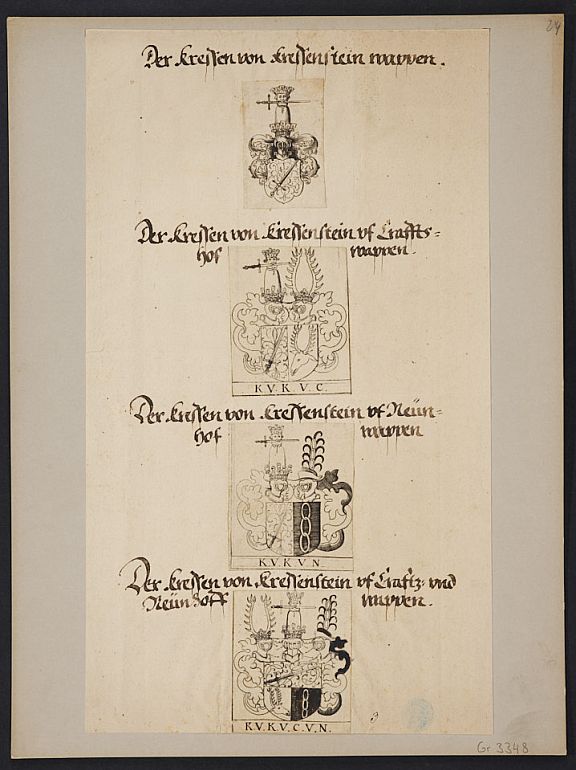 24
Der Kressen von Kressenstein wappen.
Der Kressen von Kressenstein vf Craffts=
hof wappen.
K.V.K.V.C.
Der Kressen von Kressenstein vf Neün=
hof wappen
K.V.K.V.N.
Der Kressen von Kressenstein vf Craftz- vnd
Neünhoff wappen.
K.V.K.V.C.V.N.
Gr 3348